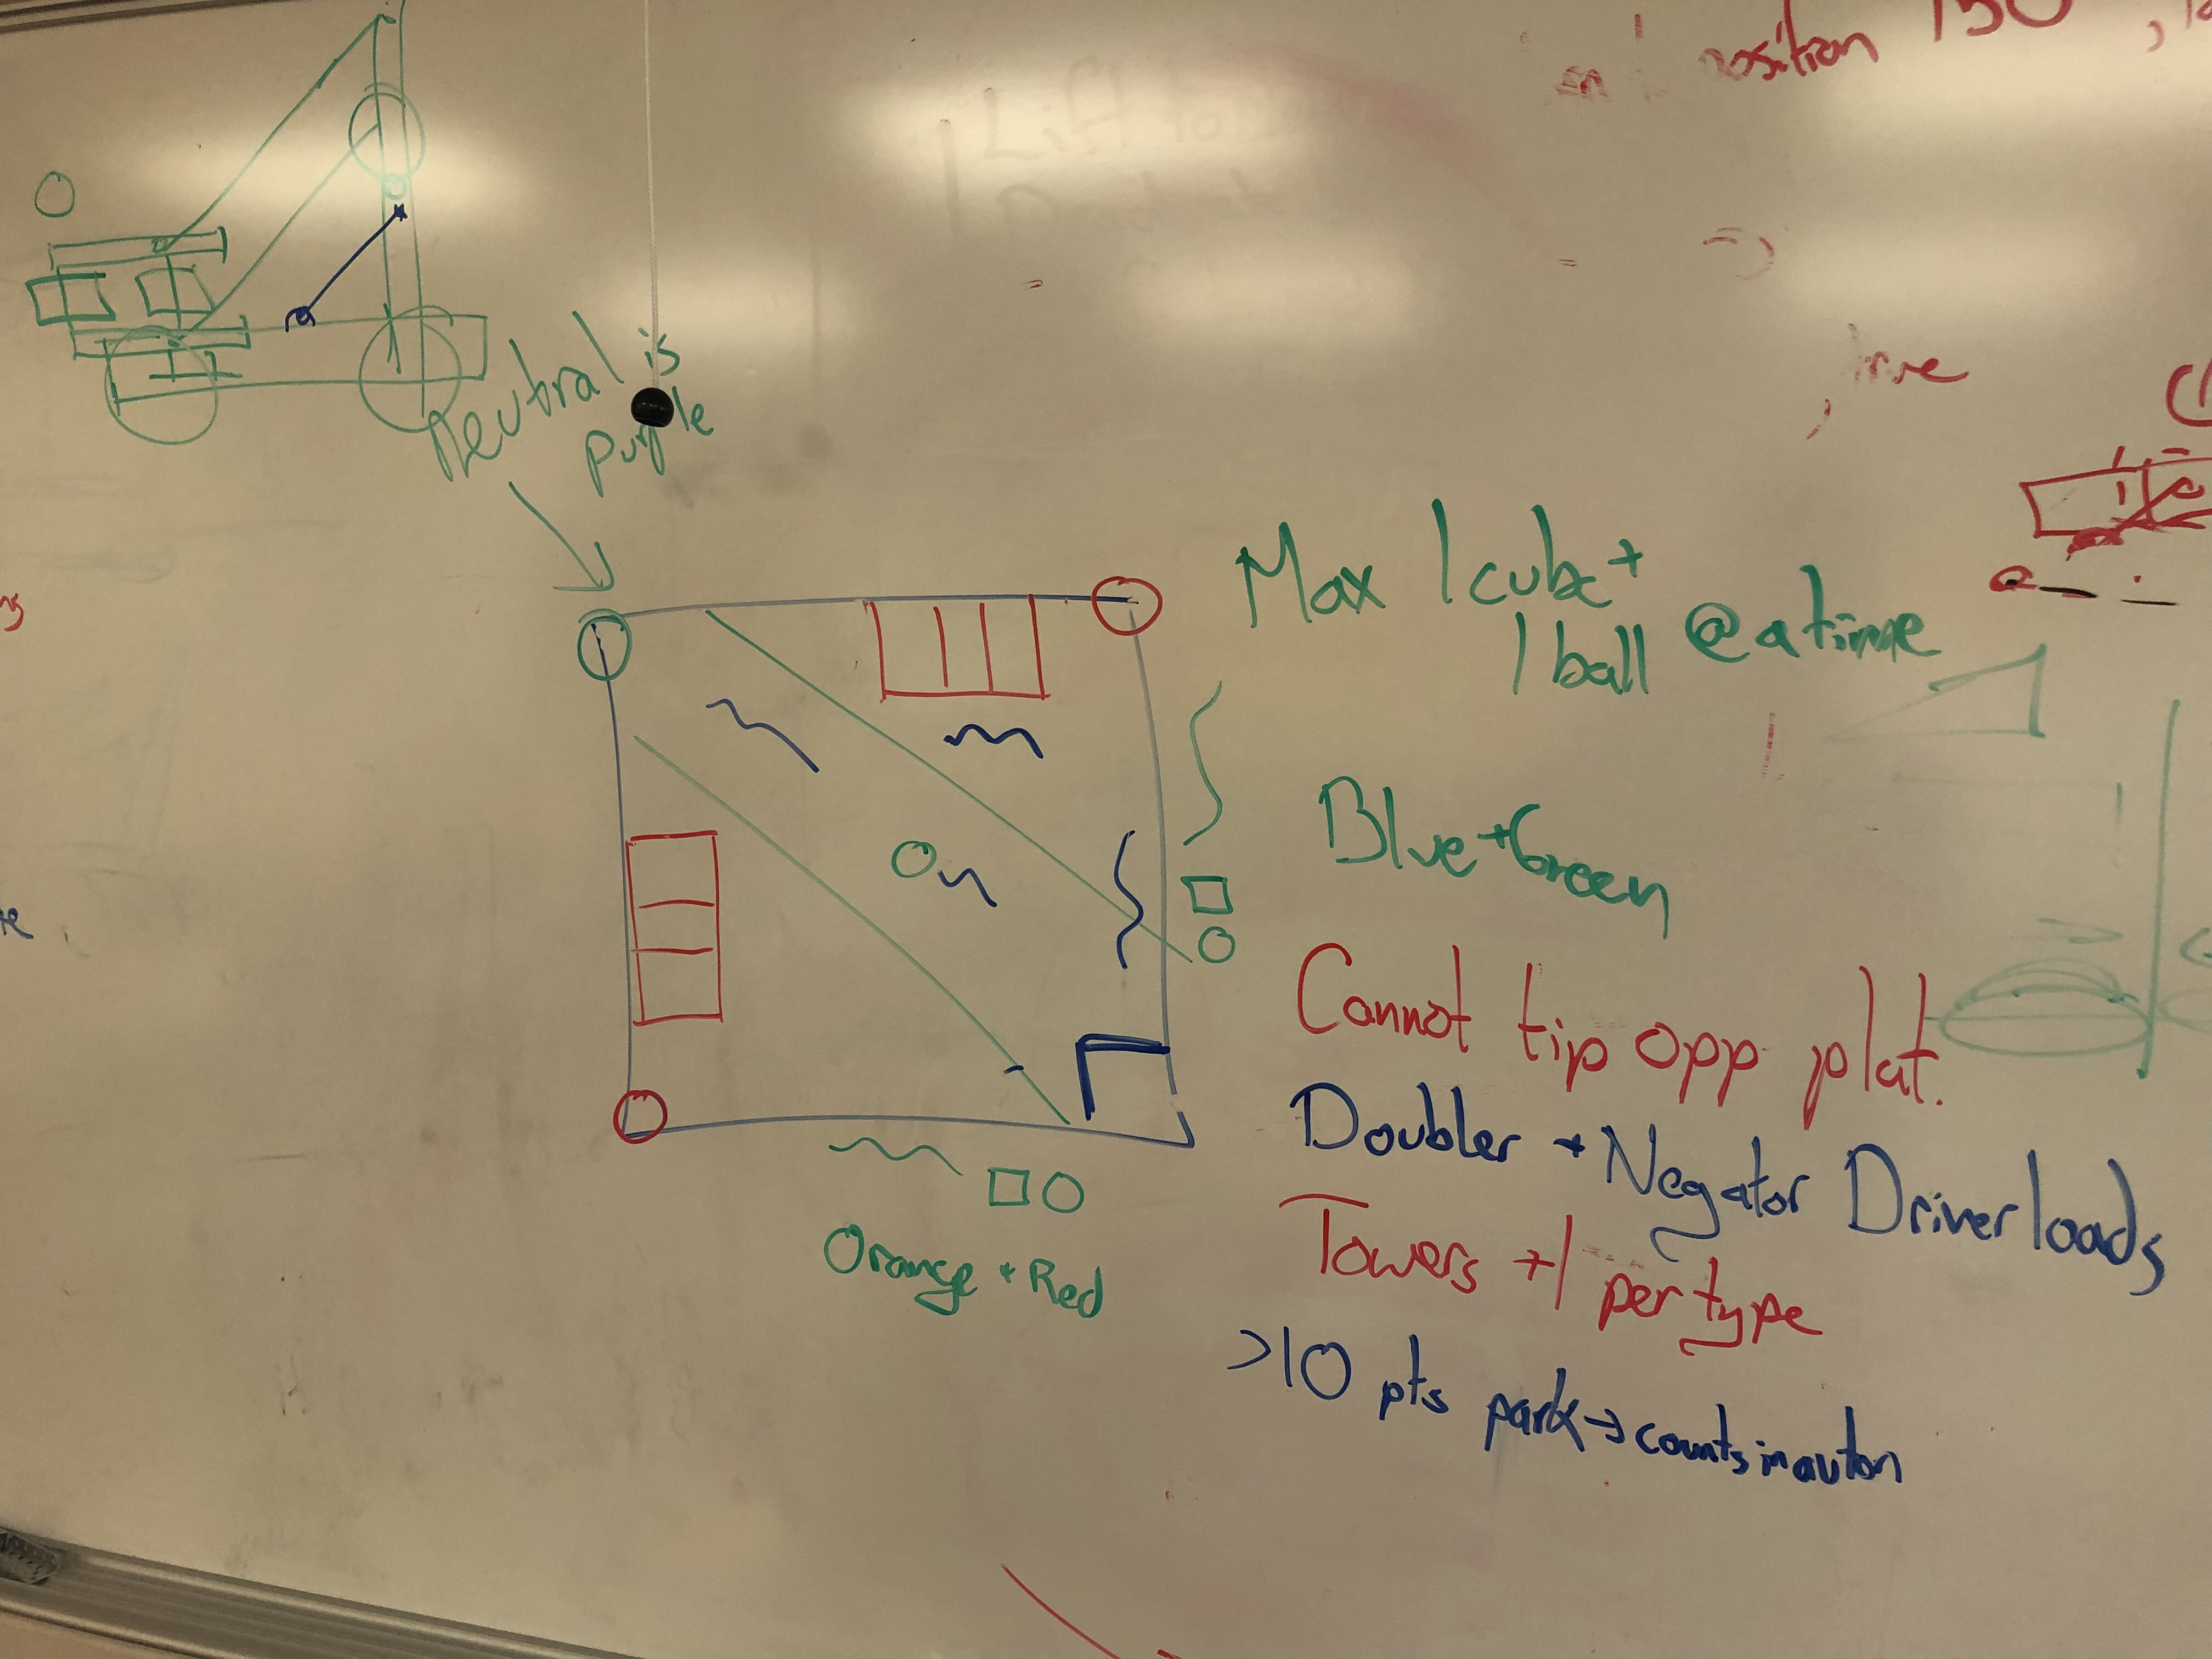 position 150
time
Neutral is
purple
Max 1 cube +
1 ball @ a time
Blue + Green
Cannot tip opp plat.
Doubler + Negator Driver loads
Towers +1 per type
>10 pts park → counts in auton
Orange + Red